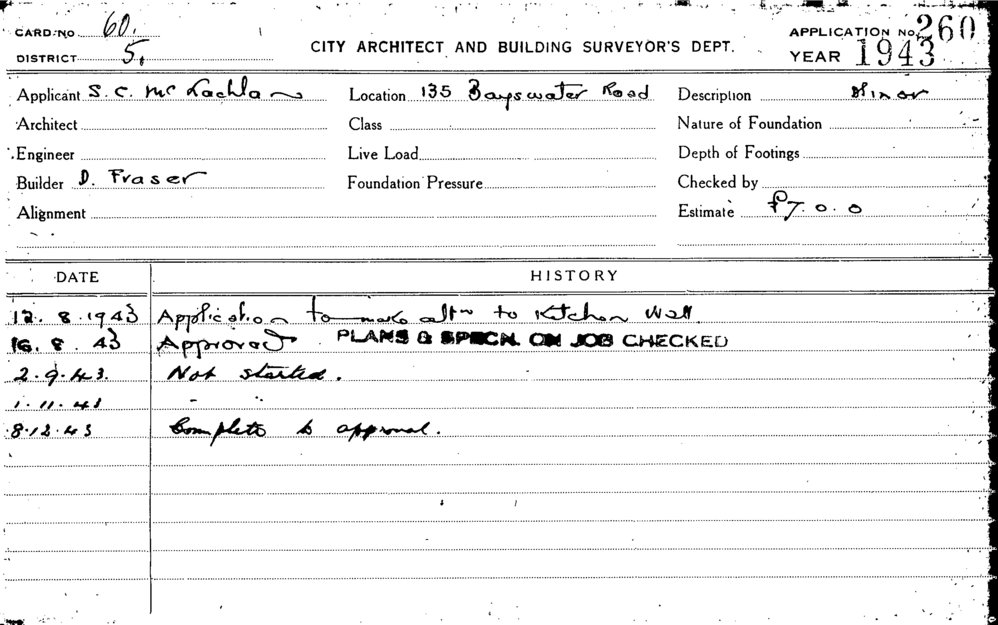 CARD NO 60.
DISTRICT 5.
CITY ARCHITECT AND BUILDING SURVEYOR'S DEPT.
APPLICATION No. 260
YEAR 1943
Applicant S. C. McLachlan Location 135 Bayswater Road Description Minor
Architect Class Nature of Foundation
Engineer Live Load Depth of Footings
Builder D. Fraser Foundation Pressure Checked by
Alignment Estimate £7. 0. 0
DATE HISTORY
12. 8. 1943 Application to make altn to Kitchen Wall
16. 8. 43 Approved PLANS & SPECN. ON JOB CHECKED
2. 9. 43. Not started.
1. 11. 43 - "
8. 12. 43 Complete to approval.